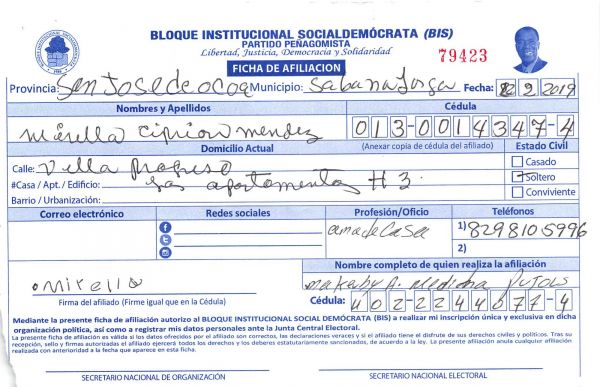 BLOQUE INSTITUCIONAL SOCIALDEMÓCRATA (BIS)
PARTIDO PEÑAGOMISTA
Libertad, Justicia, Democracia y Solidaridad
79423
FICHA DE AFILIACION
Provincia: San Jose de ocoa Municipio: Sabana Larga Fecha: 12 9 2019
Nombres y Apellidos Cédula
Mirella Ciprian Mendez 013-0014347-4
Domicilio Actual (Anexar copia de cédula del afiliado) Estado Civil
Calle: Villa progreso Casado
#Casa / Apt. / Edificio: los apartamentos # 3. Soltero
Barrio / Urbanización: Conviviente
Correo electrónico Redes sociales Profesión/Oficio Teléfonos
ama de Casa 1) 8298105996
2)
Nombre completo de quien realiza la afiliación
Mirella A. Medina Pujols
Firma del afiliado (Firme igual que en la Cédula) Cédula: 402-2244677-4
Mediante la presente ficha de afiliación autorizo al BLOQUE INSTITUCIONAL SOCIAL DEMÓCRATA (BIS) a realizar mi inscripción única y exclusiva en dicha
organización política, así como a registrar mis datos personales ante la Junta Central Electoral.
La presente ficha de afiliación es válida si los datos ofrecidos por el afiliado son correctos, las declaraciones veraces y si el afiliado tiene el disfrute de sus derechos civiles y políticos. Tras su
recepción, sello y firmas autorizadas el afiliado ejercerá todos los derechos y los deberes estatutariamente sancionados, de acuerdo a la ley. La presente afiliación anula cualquier afiliación
realizada con anterioridad a la fecha que aparece en esta ficha.
SECRETARIO NACIONAL DE ORGANIZACIÓN SECRETARIO NACIONAL ELECTORAL